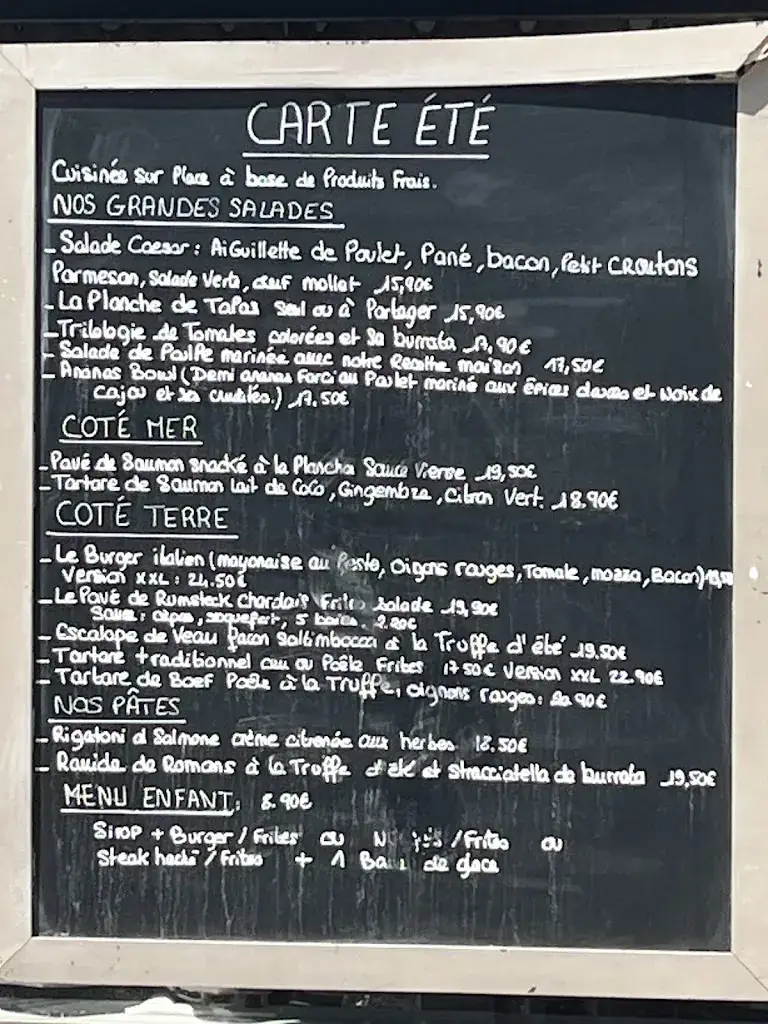 CARTE ÉTÉ
Cuisinée sur Place à base de Produits Frais.
NOS GRANDES SALADES
- Salade Caesar : Aiguillette de Poulet, Pané, bacon, Petit CRoutons
Parmesan, Salade Verte, œuf mollet 15,90€
- La Planche de Tapas Seul ou à Partager 15,90€
- Trilologie de Tomates colorées et Sa burrata 17,90€
- Salade de Poulpe marinée avec notre Recette maison 17,50€
- Ananas Bowl (Demi ananas Farci au Poulet mariné aux épices douces et Noix de
Cajou et ses crudités.) 17.50€
COTÉ MER
- Pavé de Saumon snacké à la Plancha Sauce Vierge 19,50€
- Tartare de Saumon lait de Coco, Gingembre, Citron Vert. 18.90€
COTÉ TERRE
- Le Burger italien (mayonaise au Pesto, Oigons rouges, Tomate, mozza, Bacon)
Version XXL : 24.50€
- Le Pavé de Rumsteck Charolais Frites Salade 19,90€
Sauce : cèpes, roquefort, 5 baies. 2.20€
- Escalope de Veau façon Saltimbocca à la Truffe d'été 19.50€
- Tartare traditionnel cru ou Poêlé Frites 17.50€ Version XXL 22.90€
- Tartare de Boef Poêlé à la Truffe, oignons rouges : 20.90€
NOS PÂTES
- Rigatoni al Salmone crème citronée aux herbes 18.50€
- Raviole de Romans à la Truffe d'été et stracciatella de burrata 19,50€
MENU ENFANT : 8.90€
Sirop + Burger / Frites ou /Frites ou
Steak haché / Frites + 1 de glace